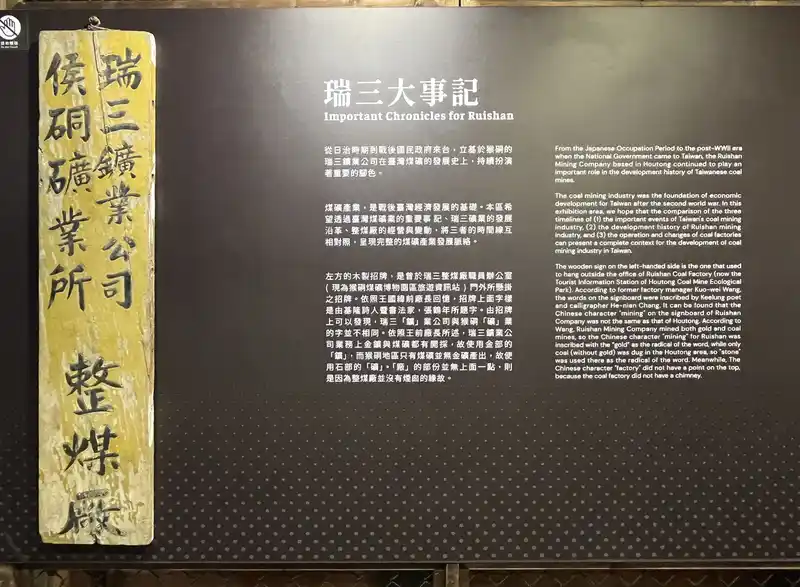 瑞三鑛業公司
侯硐礦業所
整煤厰
瑞三大事記
Important Chronicles for Ruishan
從日治時期到戰後國民政府來台，立基於猴硐的
瑞三鑛業公司在臺灣煤礦的發展史上，持續扮演
著重要的腳色。
煤礦產業，是戰後臺灣經濟發展的基礎。本區希
望透過臺灣煤礦業的重要事記、瑞三礦業的發展
沿革、整煤廠的經營與變動，將三者的時間線互
相對照，呈現完整的煤礦產業發展脈絡。
左方的木製招牌，是曾於瑞三整煤廠職員辦公室
（現為猴硐煤礦博物園區旅遊資訊站）門外所懸掛
之招牌。依照王國緯前廠長回憶，招牌上面字樣
是由基隆詩人暨書法家，張鶴年所題字。由招牌
上可以發現，瑞三「鑛」業公司與猴硐「礦」業
的字並不相同。依照王前廠長所述，瑞三鑛業公
司業務上金鑛與煤礦都有開採，故使用金部的
「鑛」，而猴硐地區只有煤礦並無金礦產出，故使
用石部的「礦」。「廠」的部份並無上面一點，則
是因為整煤廠並沒有煙囪的緣故。
From the Japanese Occupation Period to the post-WWII era
when the National Government came to Taiwan, the Ruishan
Mining Company based in Houtong continued to play an
important role in the development history of Taiwanese coal
mines.
The coal mining industry was the foundation of economic
development for Taiwan after the second world war. In this
exhibition area, we hope that the comparison of the three
timelines of (1) the important events of Taiwan's coal mining
industry, (2) the development history of Ruishan mining
industry, and (3) the operation and changes of coal factories
can present a complete context for the development of coal
mining industry in Taiwan.
The wooden sign on the left-handed side is the one that used
to hang outside the office of Ruishan Coal Factory (now the
Tourist Information Station of Houtong Coal Mine Ecological
Park). According to former factory manager Kuo-wei Wang,
the words on the signboard were inscribed by Keelung poet
and calligrapher He-nian Chang. It can be found that the
Chinese character "mining" on the signboard of Ruishan
Company was not the same as that of Houtong. According to
Wang, Ruishan Mining Company mined both gold and coal
mines, so the Chinese character "mining" for Ruishan was
inscribed with the "gold" as the radical of the word, while only
coal (without gold) was dug in the Houtong area, so "stone"
was used there as the radical of the word. Meanwhile, The
Chinese character "factory" did not have a point on the top,
because the coal factory did not have a chimney.